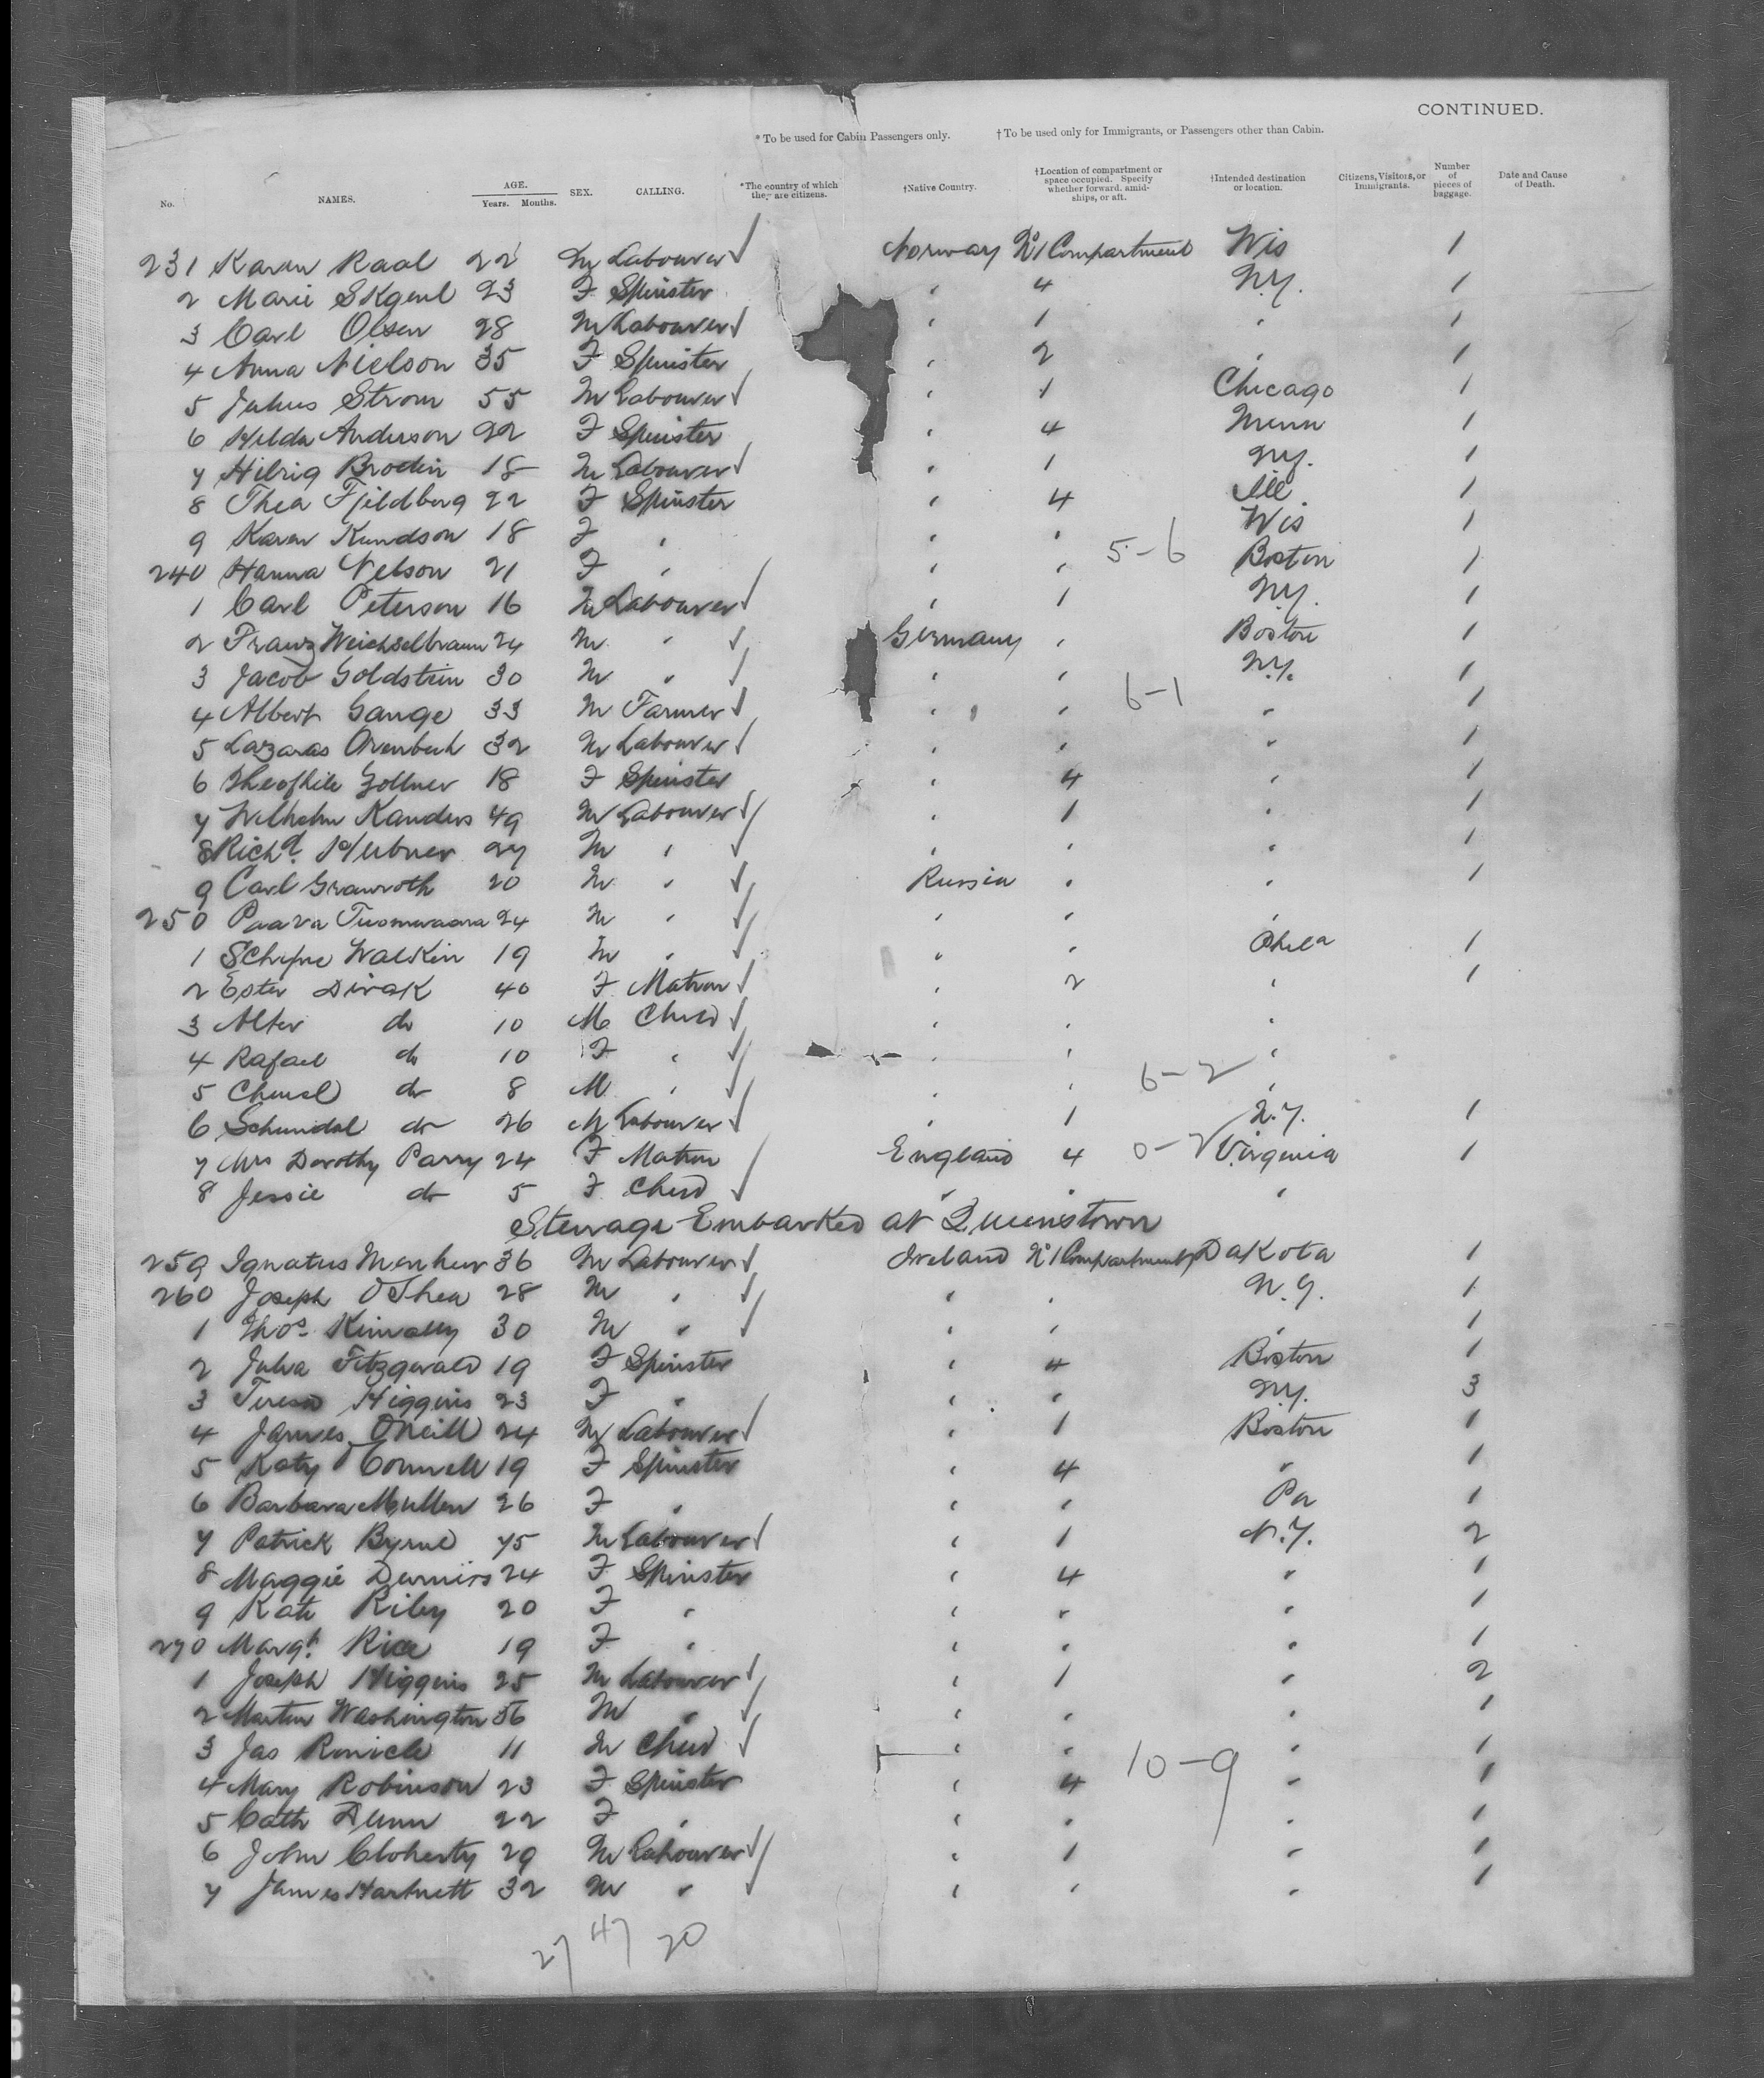 CONTINUED.
* To be used for Cabin Passengers only. † To be used only for Immigrants, or Passengers other than Cabin.
No. NAMES. AGE. Years. Months. SEX. CALLING. *The country of which they are citizens. †Native Country. †Location of compartment or space occupied. Specify whether forward, amidships, or aft. †Intended destination or location. Citizens, Visitors, or Immigrants. Number of pieces of baggage. Date and Cause of Death.
231 Karen Raal 22 M Labourer Norway No 1 Compartment Wis 1
2 Marie 23 F Spinster " 4 N.Y. 1
3 Carl Olsen 28 M Labourer " 1 " 1
4 Anna Nielson 35 F Spinster " 2 " 1
5 Julius Strom 55 M Labourer " 1 Chicago 1
6 Hilda Anderson 22 F Spinster " 4 Minn 1
7 Hilrig Brodin 18 M Labourer " 1 N.Y. 1
8 Thea Fjeldberg 22 F Spinster " 4 Ill 1
9 Karen Kundson 18 F " " " Wis 1
240 Hanna Nelson 21 F " " " 5-6 Boston 1
1 Carl Peterson 16 M Labourer " 1 N.Y. 1
2 Franz Weichselbraun 24 M " Germany " Boston 1
3 Jacob Goldstein 30 M " " " N.Y. 1
4 Albert Gange 33 M Farmer " " 6-1 " 1
5 Lazaras Orenbuch 32 M Labourer " " " 1
6 Theophile Zollner 18 F Spinster " 4 " 1
7 Wilhelm Kanders 49 M Labourer " 1 " 1
8 Richd. Hubner 27 M " " " " 1
9 Carl Granroth 20 M " Russia " " 1
250 Paava Tuomavaara 24 M " " " "
1 Walkin 19 M " " " Phila 1
2 Ester Dirak 40 F Matron " 2 " 1
3 Alter do 10 M Child " " "
4 Rafael do 10 F " " " "
5 do 8 M " " " 6-2 "
6 Schundal do 26 M Labourer " 1 N.Y. 1
7 Mrs Dorothy Parry 24 F Matron England 4 0-2 Virginia 1
8 Jessie do 5 F Child " " "
Steerage Embarked at Queenstown
259 Ignatus 36 M Labourer Ireland No 1 Compartment Dakota 1
260 Joseph O'Shea 28 M " " " N.Y. 1
1 Thos. Kinnally 30 M " " " " 1
2 Julia Fitzgerald 19 F Spinster " 4 Boston 1
3 Teresa Higgins 23 F " " " N.Y. 3
4 James O'Neill 24 M Labourer " 1 Boston 1
5 Katy Connell 19 F Spinster " 4 " 1
6 Barbara Mullen 26 F " " " Pa 1
7 Patrick Byrne 75 M Labourer " 1 N.Y. 2
8 Maggie 24 F Spinster " 4 " 1
9 Kate Riley 20 F " " " " 1
270 Margt. Rice 19 F " " " " 1
1 Joseph Higgins 25 M Labourer " 1 " 2
2 Martin Washington 56 M " " " " 1
3 Jas 11 M Child " " " 1
4 Mary Robinson 23 F Spinster " 4 10-9 " 1
5 Cath Dunn 22 F " " " " 1
6 John Cloherty 29 M Labourer " 1 " 1
7 James Hartnett 32 M " " " " 1
27 47 20